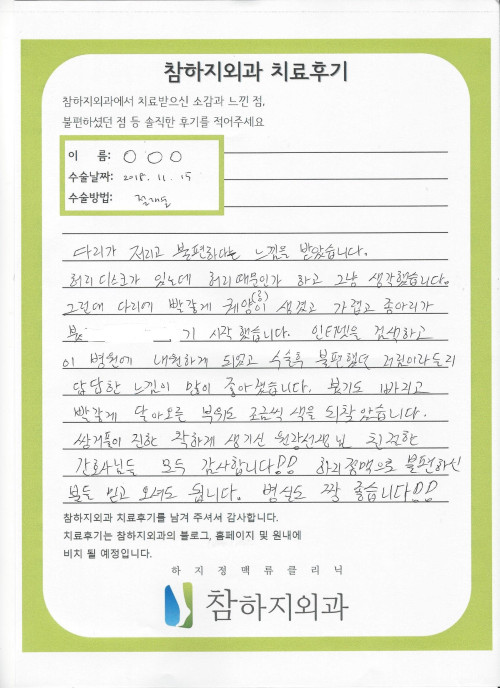 참하지외과 치료후기
참하지외과에서 치료받으신 소감과 느낀 점,
불편하셨던 점 등 솔직한 후기를 적어주세요
이 름: ○ ○ ○
수술날짜: 2018. 11. 15
수술방법:
다리가 저리고 불편하다는 느낌을 받았습니다.
허리 디스크가 있는데 허리때문인가 하고 그냥 생각했습니다.
그런데 다리에 빨갛게 궤양(흉)이 생겼고 가렵고 종아리가
붓 기 시작 했습니다. 인터넷을 검색하고
이 병원에 내원하게 되었고 수술후 불편했던 저림이라든지
답답한 느낌이 많이 좋아졌습니다. 붓기도 빠지고
빨갛게 달아오른 부위도 조금씩 색을 되찾았습니다.
쌍커풀이 진한 착하게 생기신 원장선생님 친절한
간호사님들 모두 감사합니다!! 하지정맥으로 불편하신
분들 믿고 오셔도 됩니다. 병실도 짱 좋습니다!!!
참하지외과 치료후기를 남겨 주셔서 감사합니다.
치료후기는 참하지외과의 블로그, 홈페이지 및 원내에
비치 될 예정입니다.
하 지 정 맥 류 클 리 닉
참하지외과